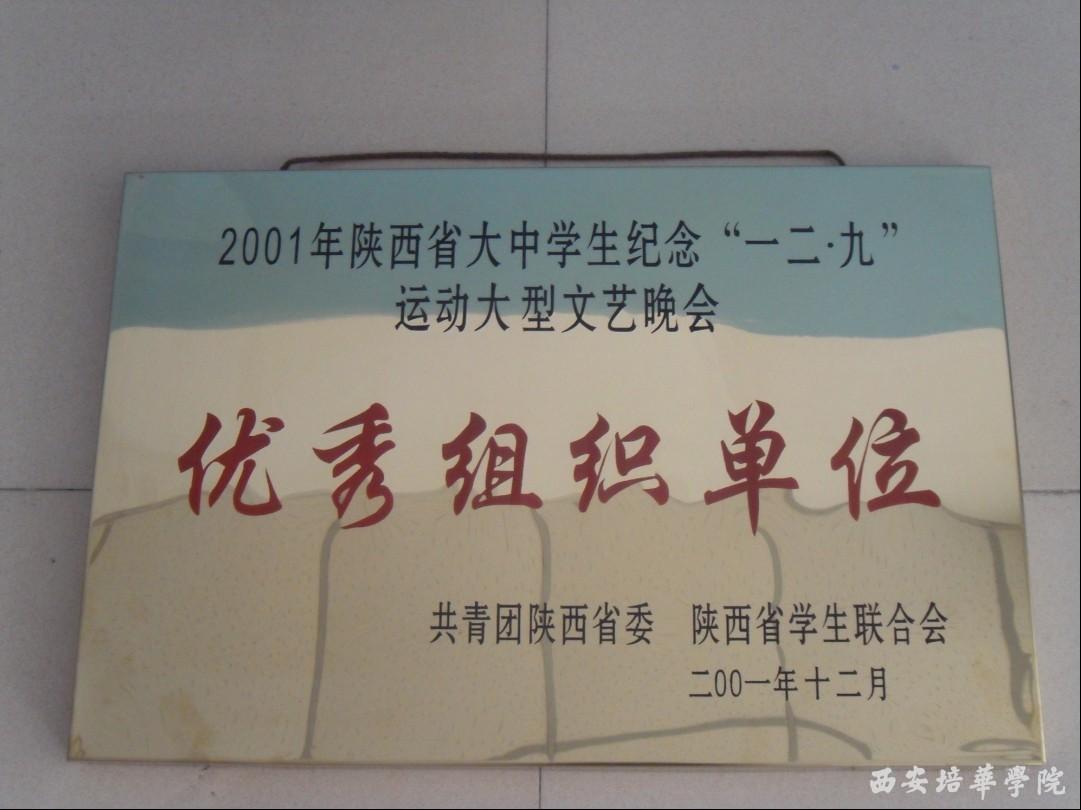 2001年陕西省大中学生纪念“一二·九”
运动大型文艺晚会
优秀组织单位
共青团陕西省委 陕西省学生联合会
二00一年十二月
西安培華學院